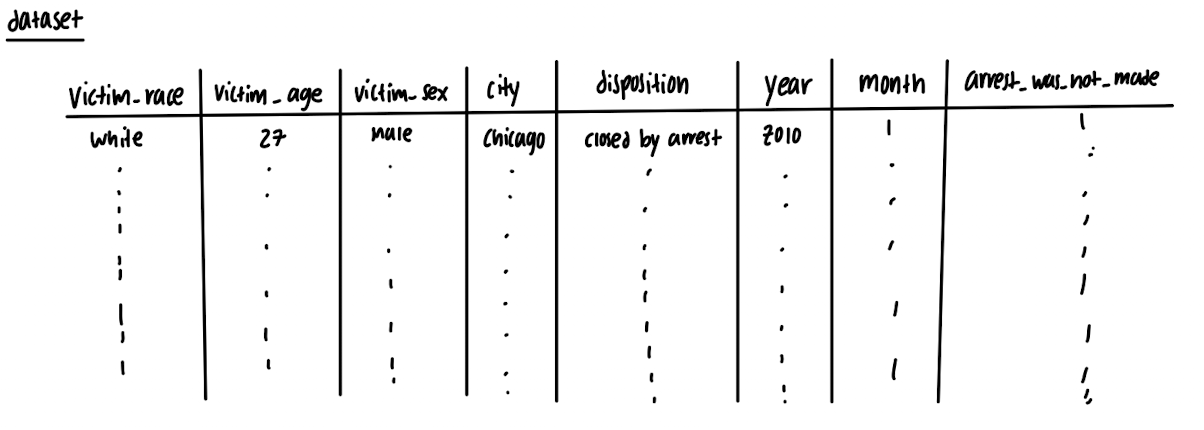 dataset
victim_race victim_age victim_sex city disposition year month arrest_was_not_made
white 27 male Chicago closed by arrest 2010 1 1